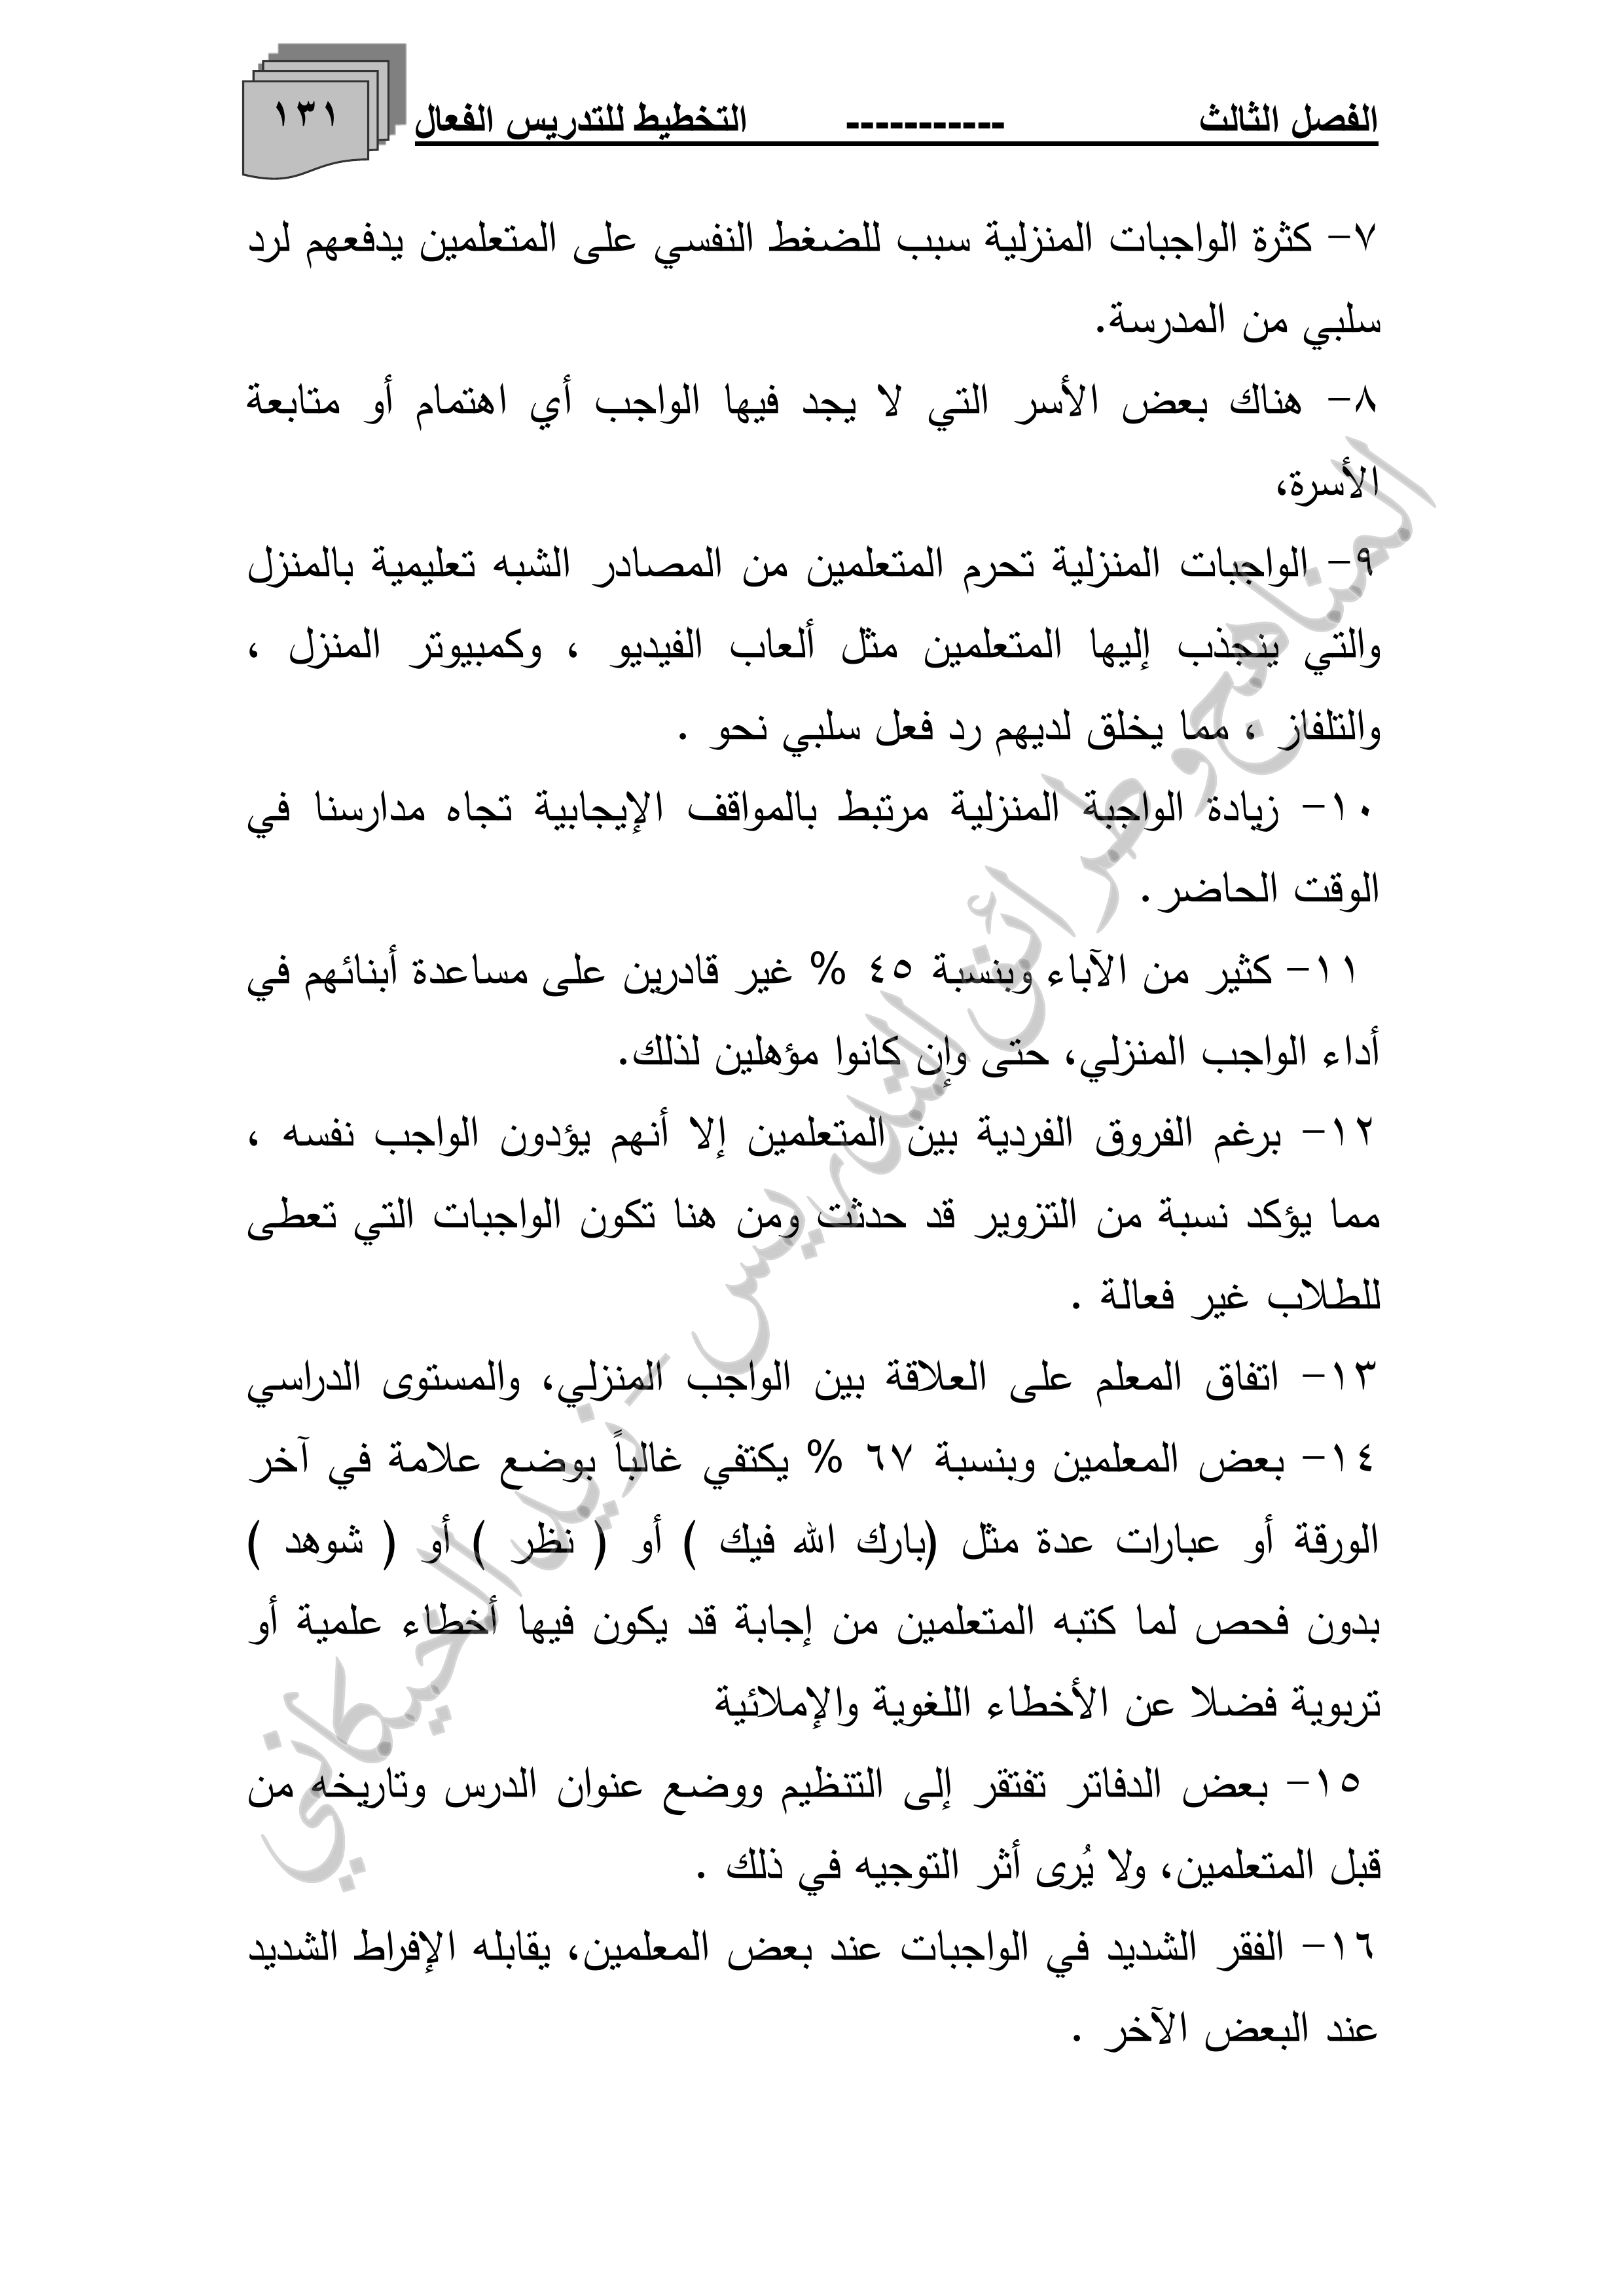 الفصل الثالث ----------- التخطيط للتدريس الفعال
١٣١
٧- كثرة الواجبات المنزلية سبب للضغط النفسي على المتعلمين يدفعهم لرد
سلبي من المدرسة.
٨- هناك بعض الأسر التي لا يجد فيها الواجب أي اهتمام أو متابعة
الأسرة،
٩- الواجبات المنزلية تحرم المتعلمين من المصادر الشبه تعليمية بالمنزل
والتي ينجذب إليها المتعلمين مثل ألعاب الفيديو ، وكمبيوتر المنزل ،
والتلفاز ، مما يخلق لديهم رد فعل سلبي نحو .
١٠- زيادة الواجبة المنزلية مرتبط بالمواقف الإيجابية تجاه مدارسنا في
الوقت الحاضر.
١١- كثير من الآباء وبنسبة ٤٥ % غير قادرين على مساعدة أبنائهم في
أداء الواجب المنزلي، حتى وإن كانوا مؤهلين لذلك.
١٢- برغم الفروق الفردية بين المتعلمين إلا أنهم يؤدون الواجب نفسه ،
مما يؤكد نسبة من التزوير قد حدثت ومن هنا تكون الواجبات التي تعطى
للطلاب غير فعالة .
١٣- اتفاق المعلم على العلاقة بين الواجب المنزلي، والمستوى الدراسي
١٤- بعض المعلمين وبنسبة ٦٧ % يكتفي غالباً بوضع علامة في آخر
الورقة أو عبارات عدة مثل (بارك الله فيك ) أو ( نظر ) أو ( شوهد )
بدون فحص لما كتبه المتعلمين من إجابة قد يكون فيها أخطاء علمية أو
تربوية فضلا عن الأخطاء اللغوية والإملائية
١٥- بعض الدفاتر تفتقر إلى التنظيم ووضع عنوان الدرس وتاريخه من
قبل المتعلمين، ولا يُرى أثر التوجيه في ذلك .
١٦- الفقر الشديد في الواجبات عند بعض المعلمين، يقابله الإفراط الشديد
عند البعض الآخر .
المناهج وطرائق التدريس - زيد الخيكاني